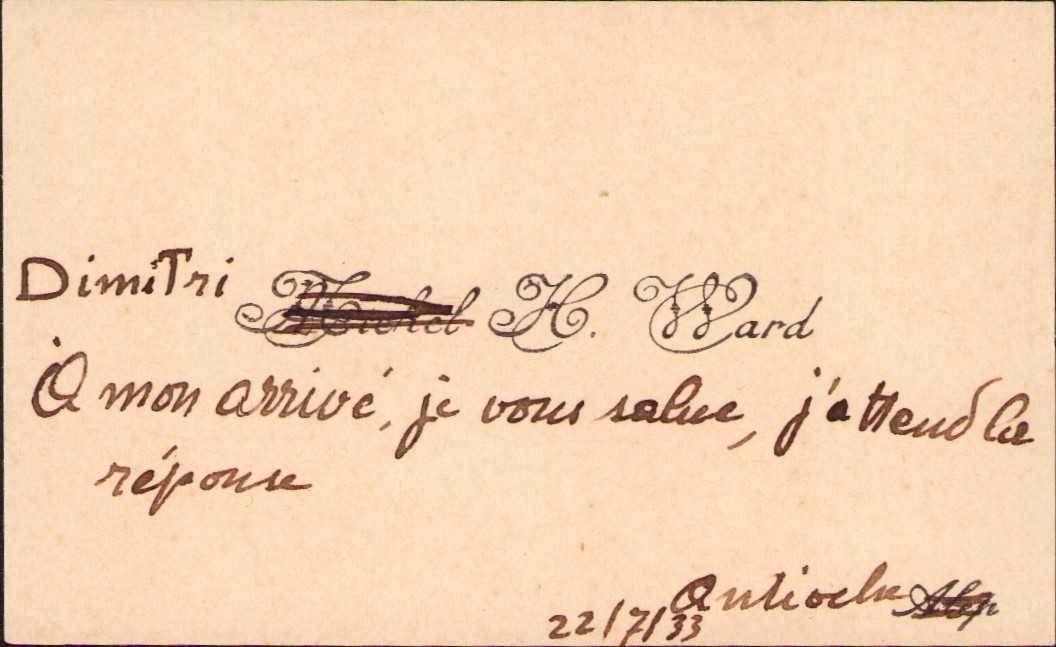 Dimitri Michel H. Ward
À mon arrivé, je vous salue, j'attend la
réponse
Antioche Alep
22/7/33